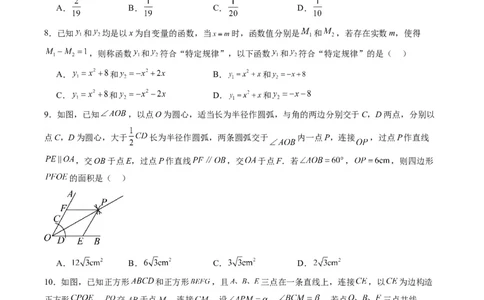 A. 2/19 B. 1/19 C. 1/20 D. 1/10
8．已知 y₁ 和 y₂ 均是以 x 为自变量的函数，当 x＝m 时，函数值分别是 M₁ 和 M₂，若存在实数 m，使得
M₁－M₂＝1，则称函数 y₁ 和 y₂ 符合“特定规律”，以下函数 y₁ 和 y₂ 符合“特定规律”的是（ ）
A．y₁＝x²＋8 和 y₂＝－x²＋2x B．y₁＝x²＋x 和 y₂＝－x＋8
C．y₁＝x²＋8 和 y₂＝－x²－2x D．y₁＝x²＋x 和 y₂＝－x－8
9．如图，已知 ∠AOB，以点 O 为圆心，适当长为半径作圆弧，与角的两边分别交于 C，D 两点，分别以
点 C，D 为圆心，大于 1/2 CD 长为半径作圆弧，两条圆弧交于 ∠AOB 内一点 P，连接 OP，过点 P 作直线
PE∥OA，交 OB 于点 E，过点 P 作直线 PF∥OB，交 OA 于点 F．若 ∠AOB＝60°，OP＝6cm，则四边形
PFOE 的面积是（ ）
A
F P
C
O D E B
A．12 3cm² B．6 3cm² C．3 3cm² D．2 3cm²
10．如图，已知正方形 ABCD 和正方形 BEFG，且 A、B、E 三点在一条直线上，连接 CE，以 CE 为边构造